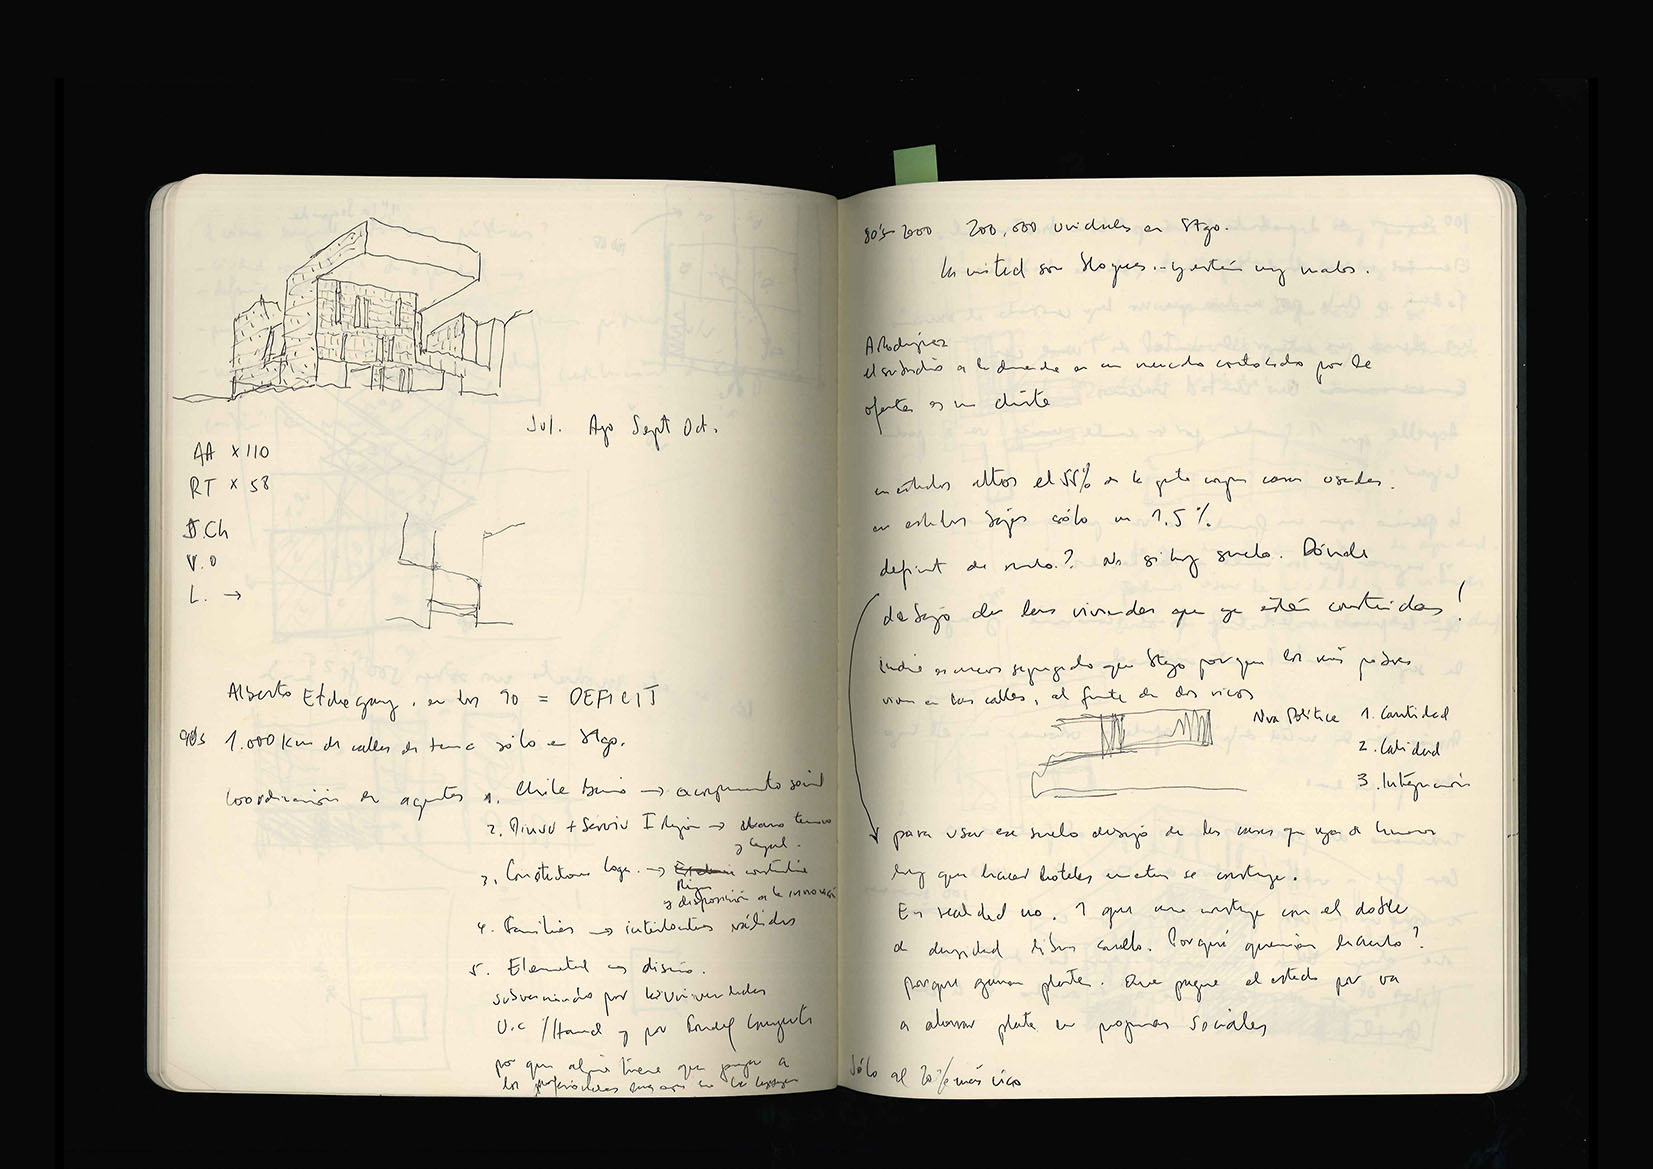 Jul. Ago Sept Oct.
AA x 110
RT x 58
D.Ch
V.O
L. →
Alberto Etchegaray, en los 90 = DEFICIT
90s 1.000 km de calles de tierra sólo en Stgo.
Coordinación de agentes
1. Chile Barrio → acompañamiento social
2. Minvu + Serviu I Región → técnico
y legal.
3. Constructora Loga. →
y disposición a la innovación
4. Familias → interlocutores válidos
5. Elemental en diseño.
por
U.C / y por Fondef
por que alguien tiene que pagar a
los profesionales
80's 2000 200,000 viviendas en Stgo.
la mitad son bloques.. y están muy malos.
A Rodríguez
el subsidio a la demanda en un mercado controlado por la
oferta es un chiste
en estratos altos el 55% de la gente compra casas usadas.
en estratos bajos sólo un 1.5%
deficit de suelo? no si hay suelo. Dónde
debajo de las viviendas que ya están construidas!
India es menos segregado que Stgo porque los más pobres
viven en las calles, al frente de los ricos
Nva Política 1. Cantidad
2. Calidad
3. Integración
para usar ese suelo debajo de las casas que
hay que hacer hoteles mientras se construye.
En realidad no. 1 que construye con el doble
de densidad Por qué querrían hacerlo?
porque ganan plata. Que pague el estado por va
a ahorrar plata en programas sociales
Sólo al 20% más rico